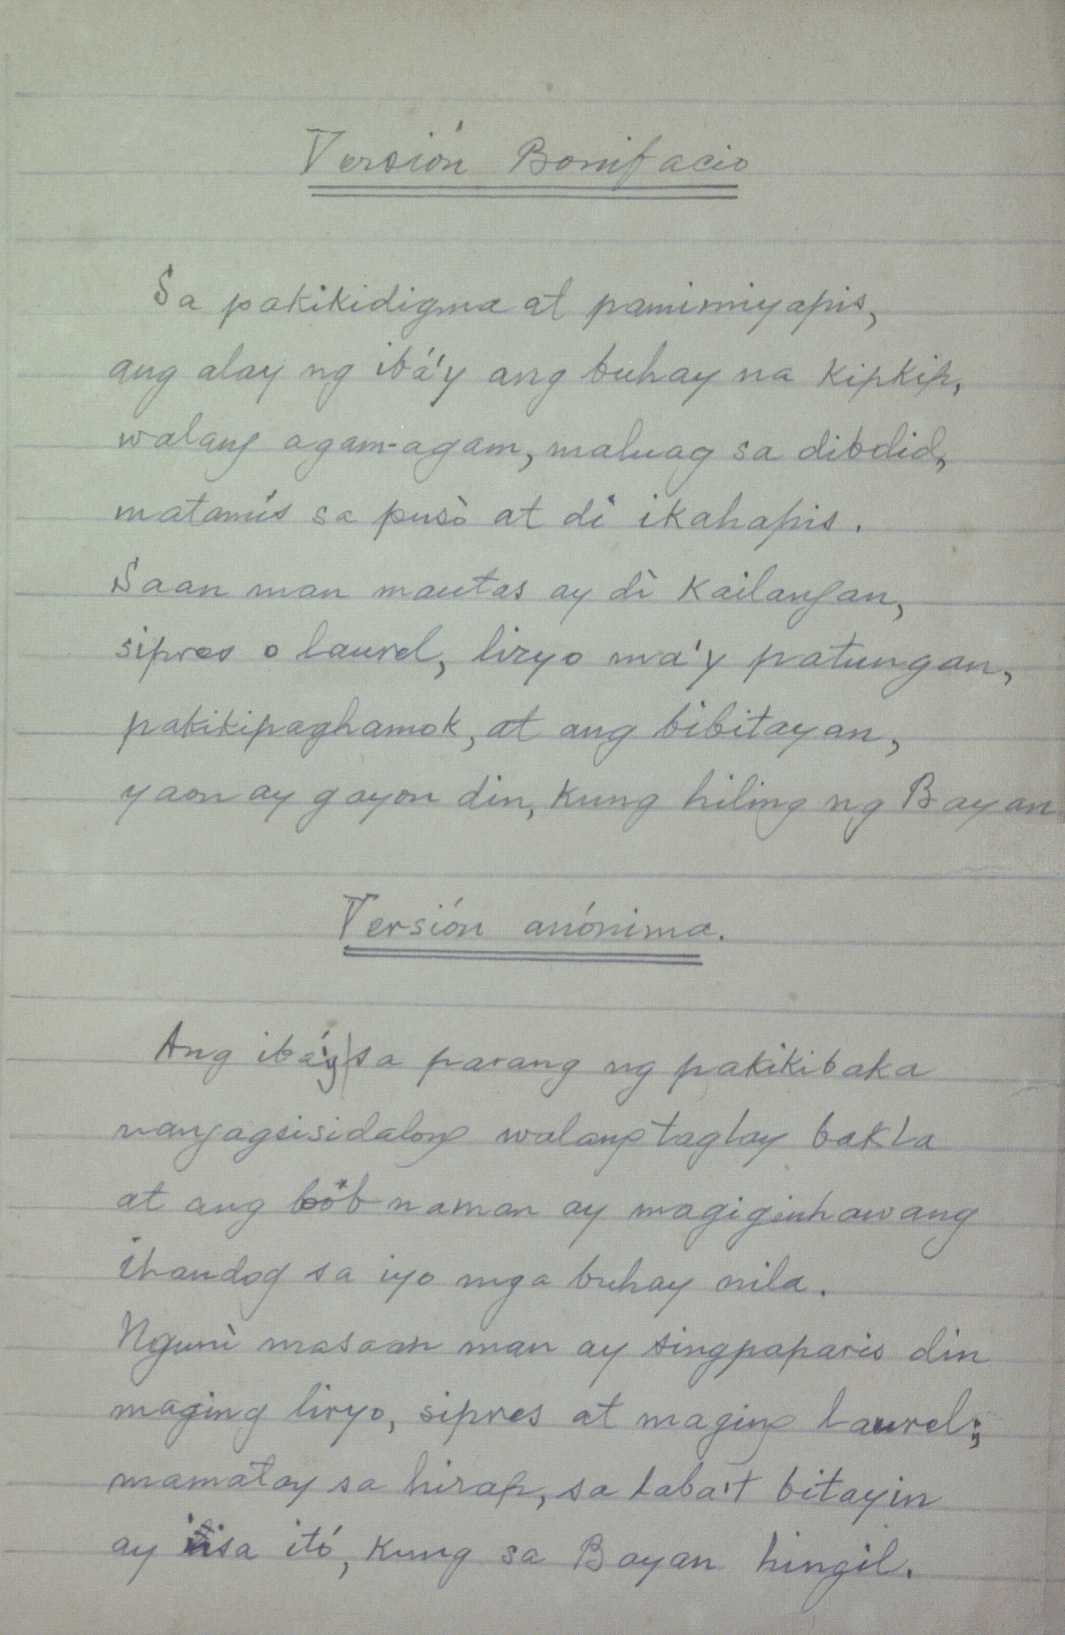 Versión Bonifacio
Sa pakikidigma at pamimiyapis,
ang alay ng ibá'y ang buhay na kipkip,
walang agam-agam, maluag sa dibdid,
matamis sa pusò at di ikahapis.
Saan man mautas ay dì kailangan,
sipres o laurel, liryo ma'y patungan,
pakikipaghamok, at ang bibitayan,
yaon ay gayon din, kung hiling ng Bayan
Versión anónima.
Ang ibá'y sa parang ng pakikibaka
nangagsisidalong walang taglay bakla
at ang loób naman ay magiginhawang
ihandog sa iyo mga buhay nila.
Ngunì masaan man ay singpaparis din
maging liryo, sipres at maging laurel;
mamatay sa hirap, sa laba't bitayin
ay iisa itó, kung sa Bayan hingil.